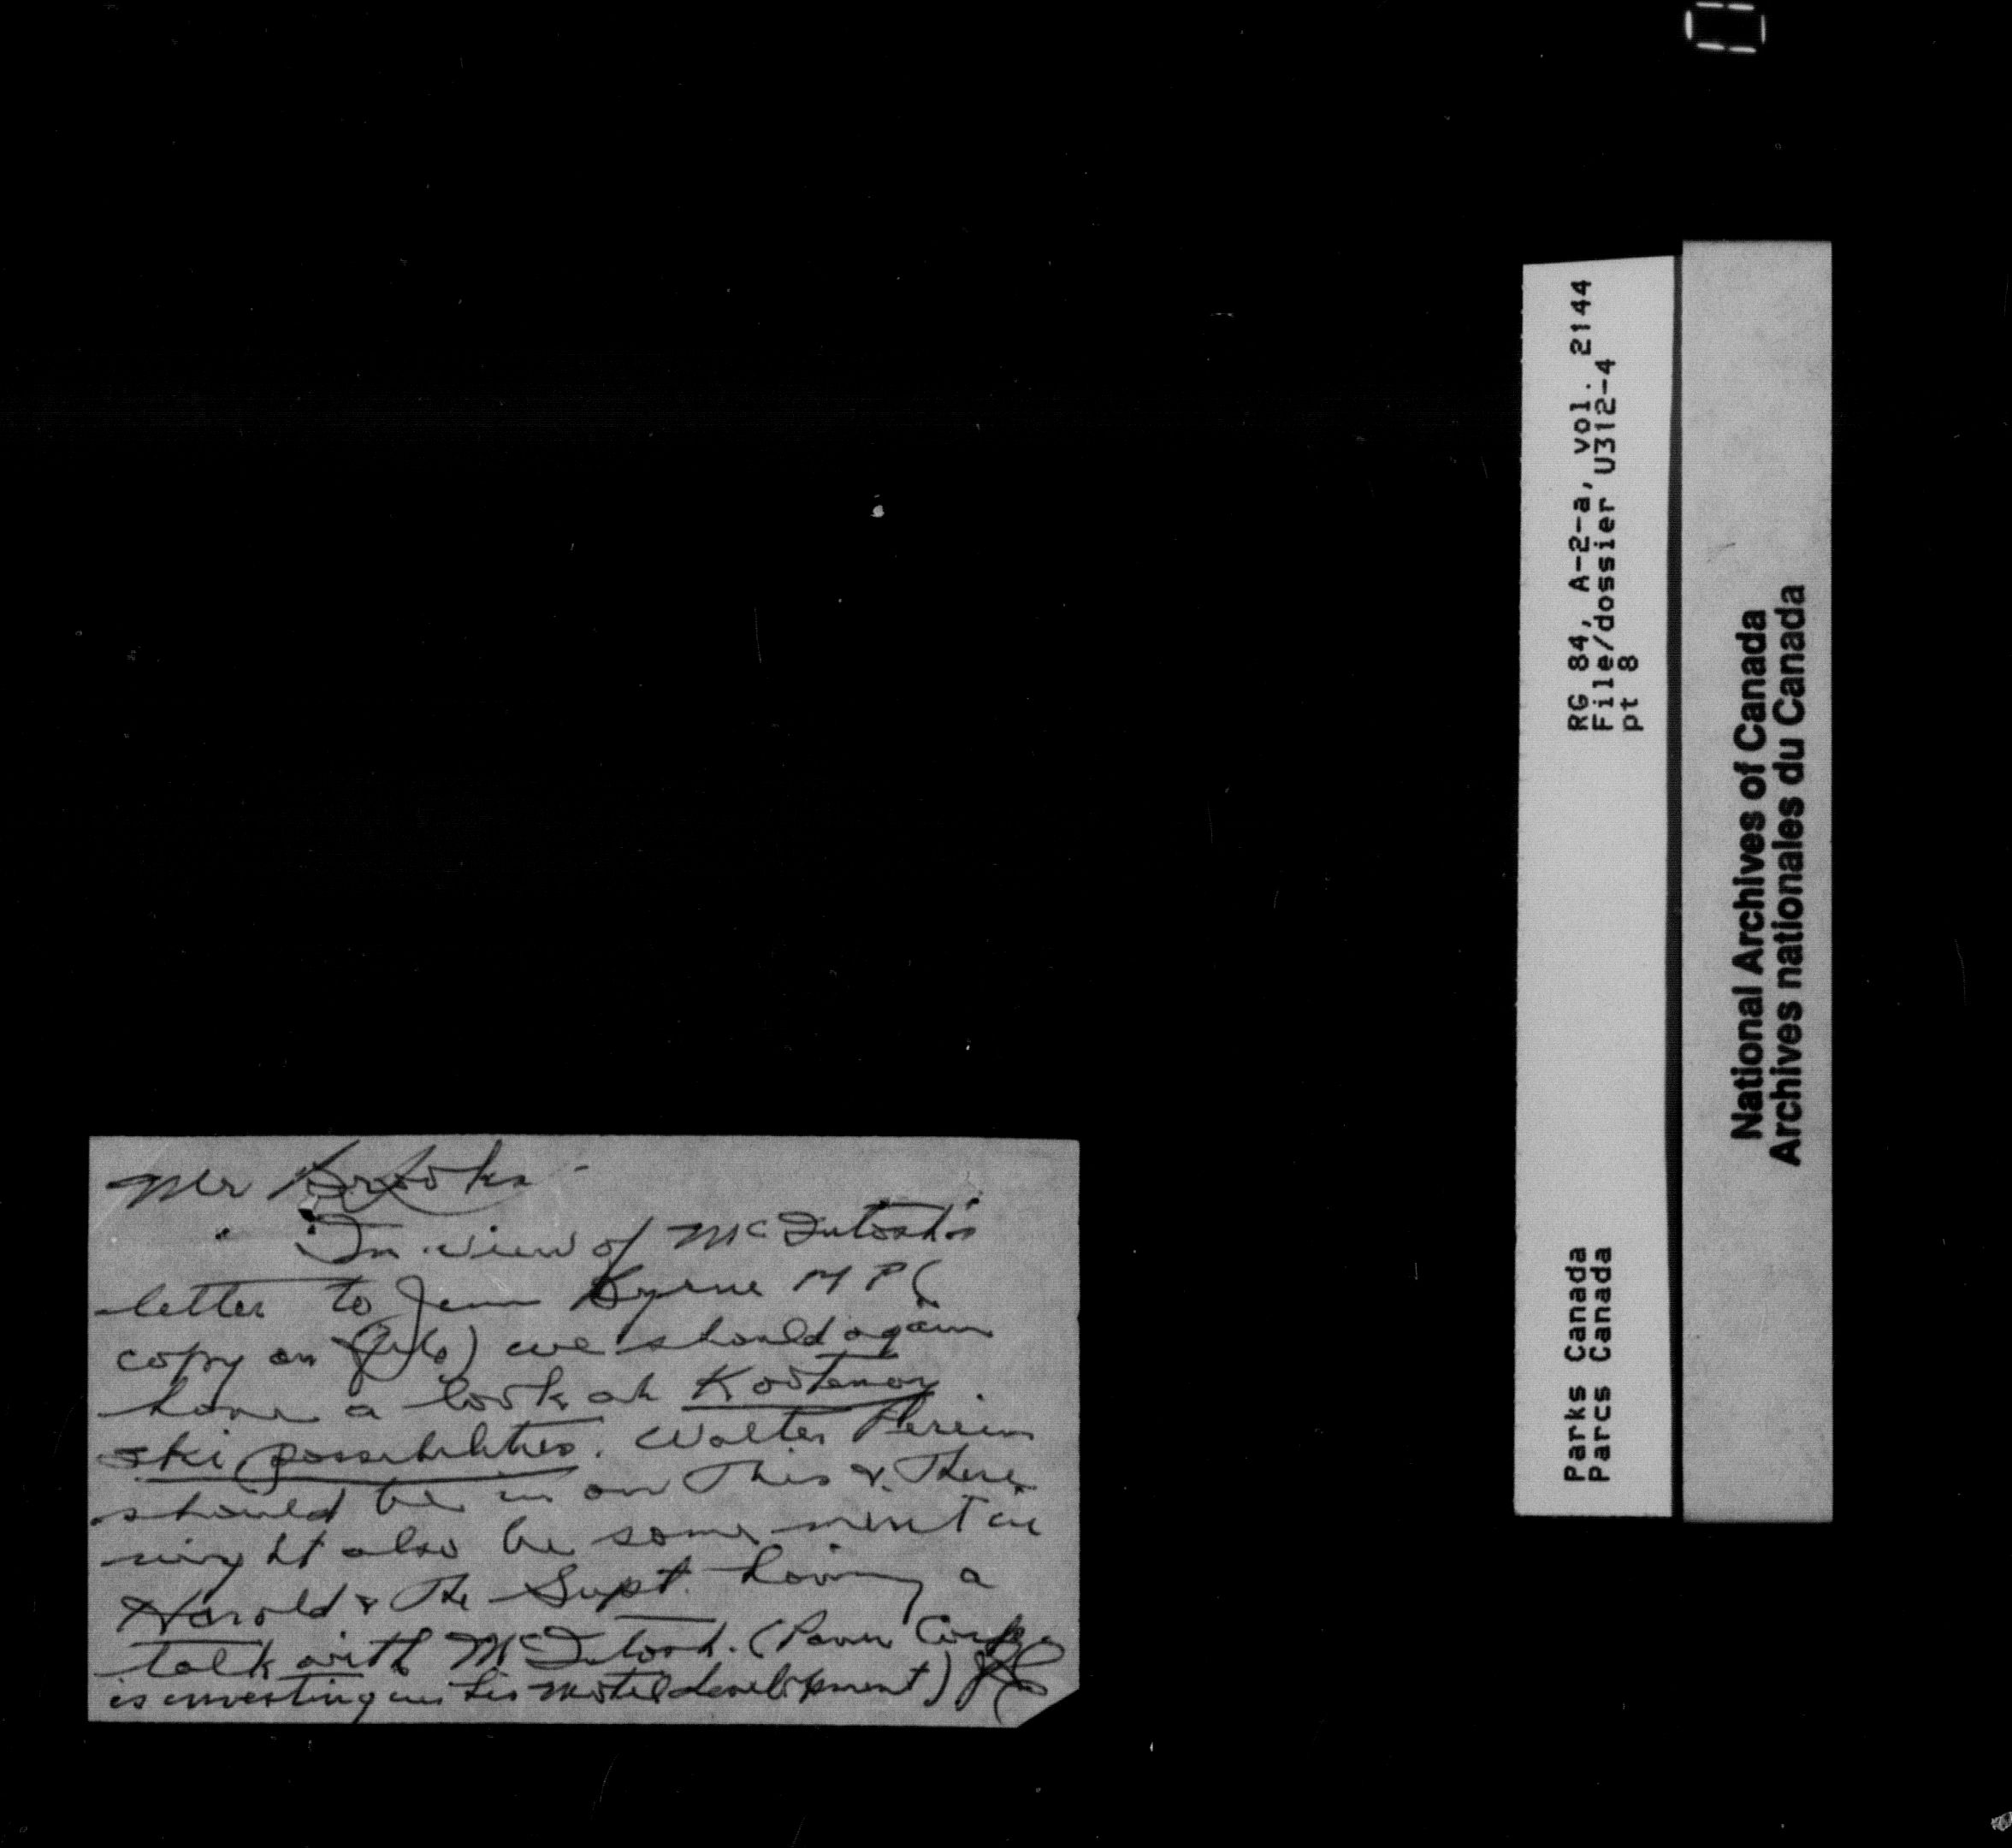 Mr Brooks -
In view of McIntosh's
letter to Jim Byrne M P (
copy on file) we should again
have a look at Kootenay
ski possibilities. Walter
should be in on this & there
might also be some merit in
Harold & the Supt. having a
talk with McIntosh. (Power Corp.
is investing in his motel development)
RG 84, A-2-a, vol. 2144
File/dossier U312-4
pt 8
Parks Canada
Parcs Canada
National Archives of Canada
Archives nationales du Canada